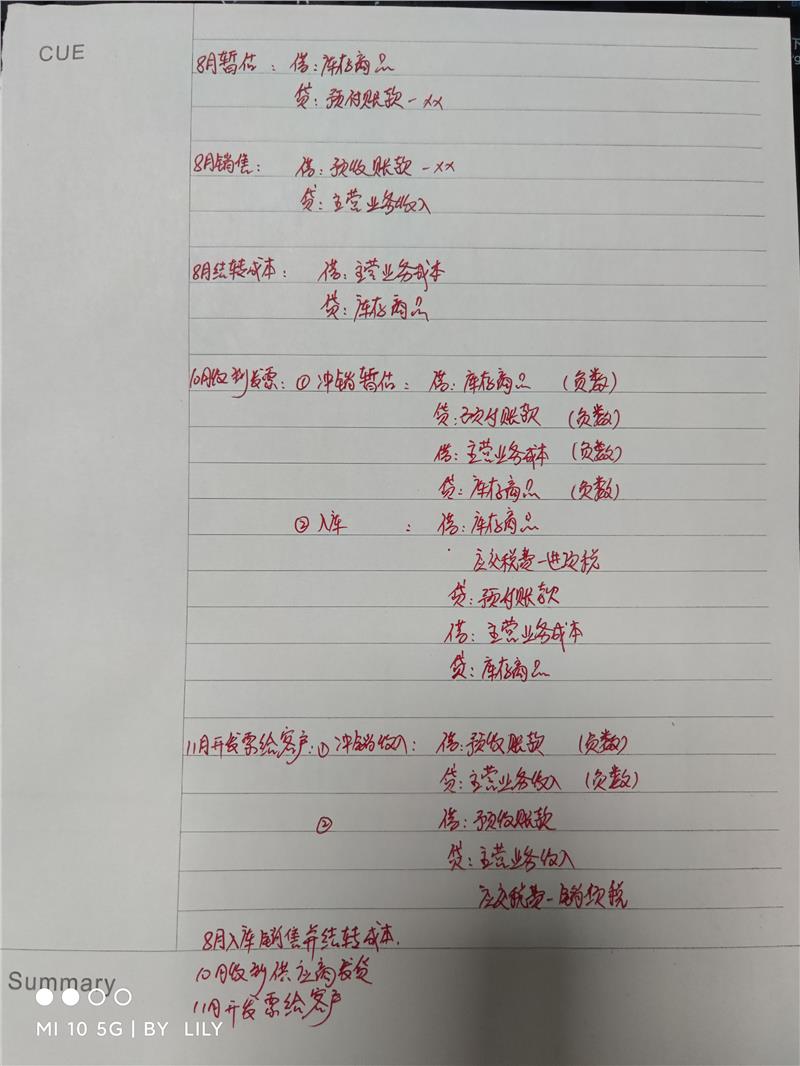 CUE
8月暂估：借：库存商品
贷：预付账款-xx
8月销售：借：预收账款-xx
贷：主营业务收入
8月结转成本：借：主营业务成本
贷：库存商品
10月收到发票：①冲销暂估：借：库存商品（负数）
贷：预付账款（负数）
借：主营业务成本（负数）
贷：库存商品（负数）
②入库：借：库存商品
应交税费-进项税
贷：预付账款
借：主营业务成本
贷：库存商品
11月开发票给客户：①冲销收入：借：预收账款（负数）
贷：主营业务收入（负数）
②借：预收账款
贷：主营业务收入
应交税费-销项税
8月入库销售并结转成本.
10月收到供应商发货
11月开发票给客户
Summary
MI 10 5G | BY LILY